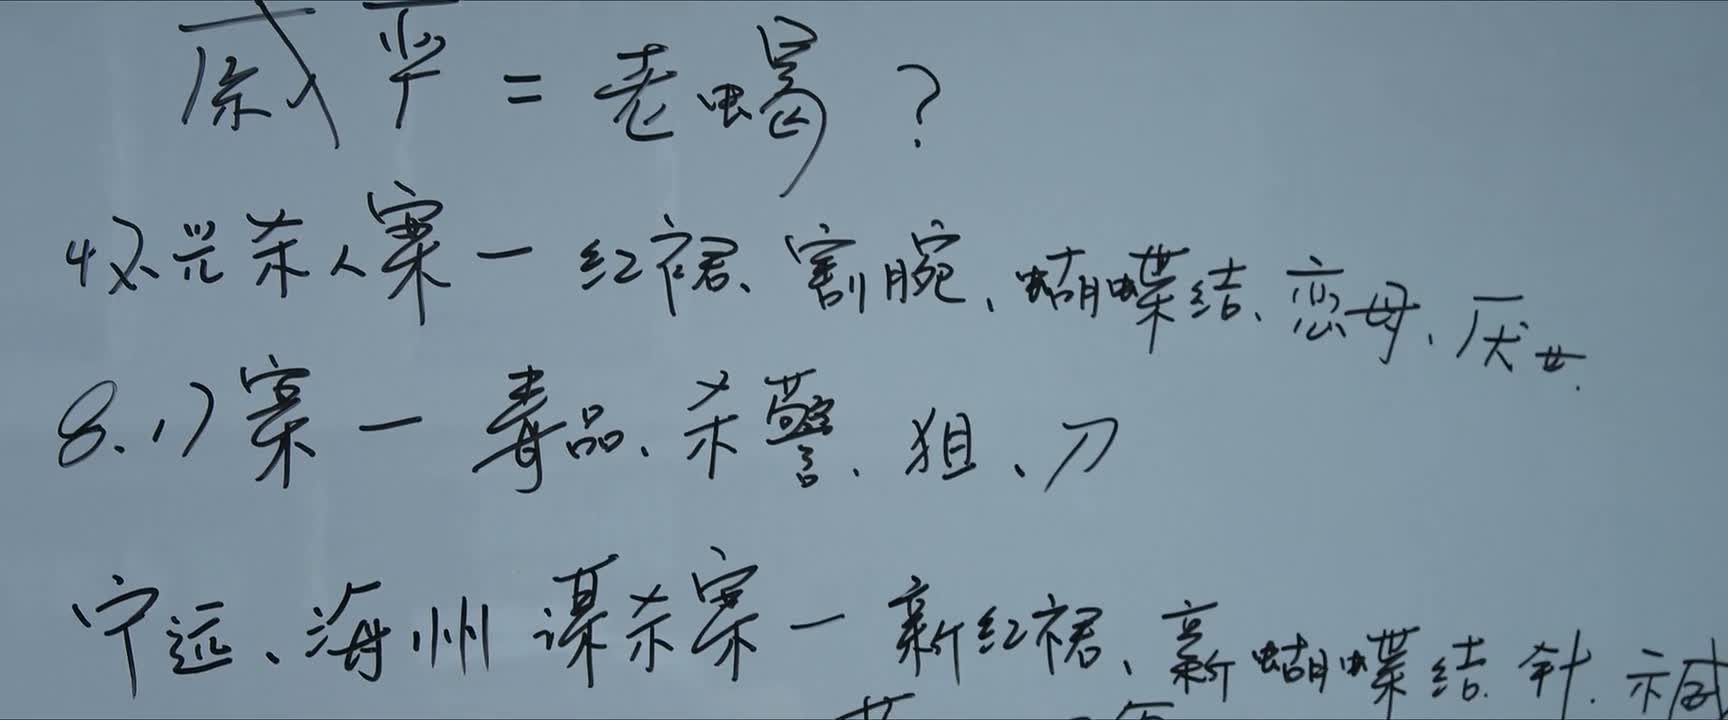 戚平=老蝎?
双兴杀人案一红裙、割腕、蝴蝶结、恋母、厌女.
8.17案一毒品、杀警、狙、刀
宁远、海州谋杀案一新红裙、新蝴蝶结.针.